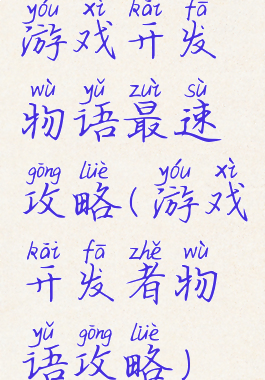 yóu xì kāi fā
游戏开发
wù yǔ zuì sù
物语最速
gōng lüè yóu xì
攻略(游戏
kāi fā zhě wù
开发者物
yǔ gōng lüè
语攻略)